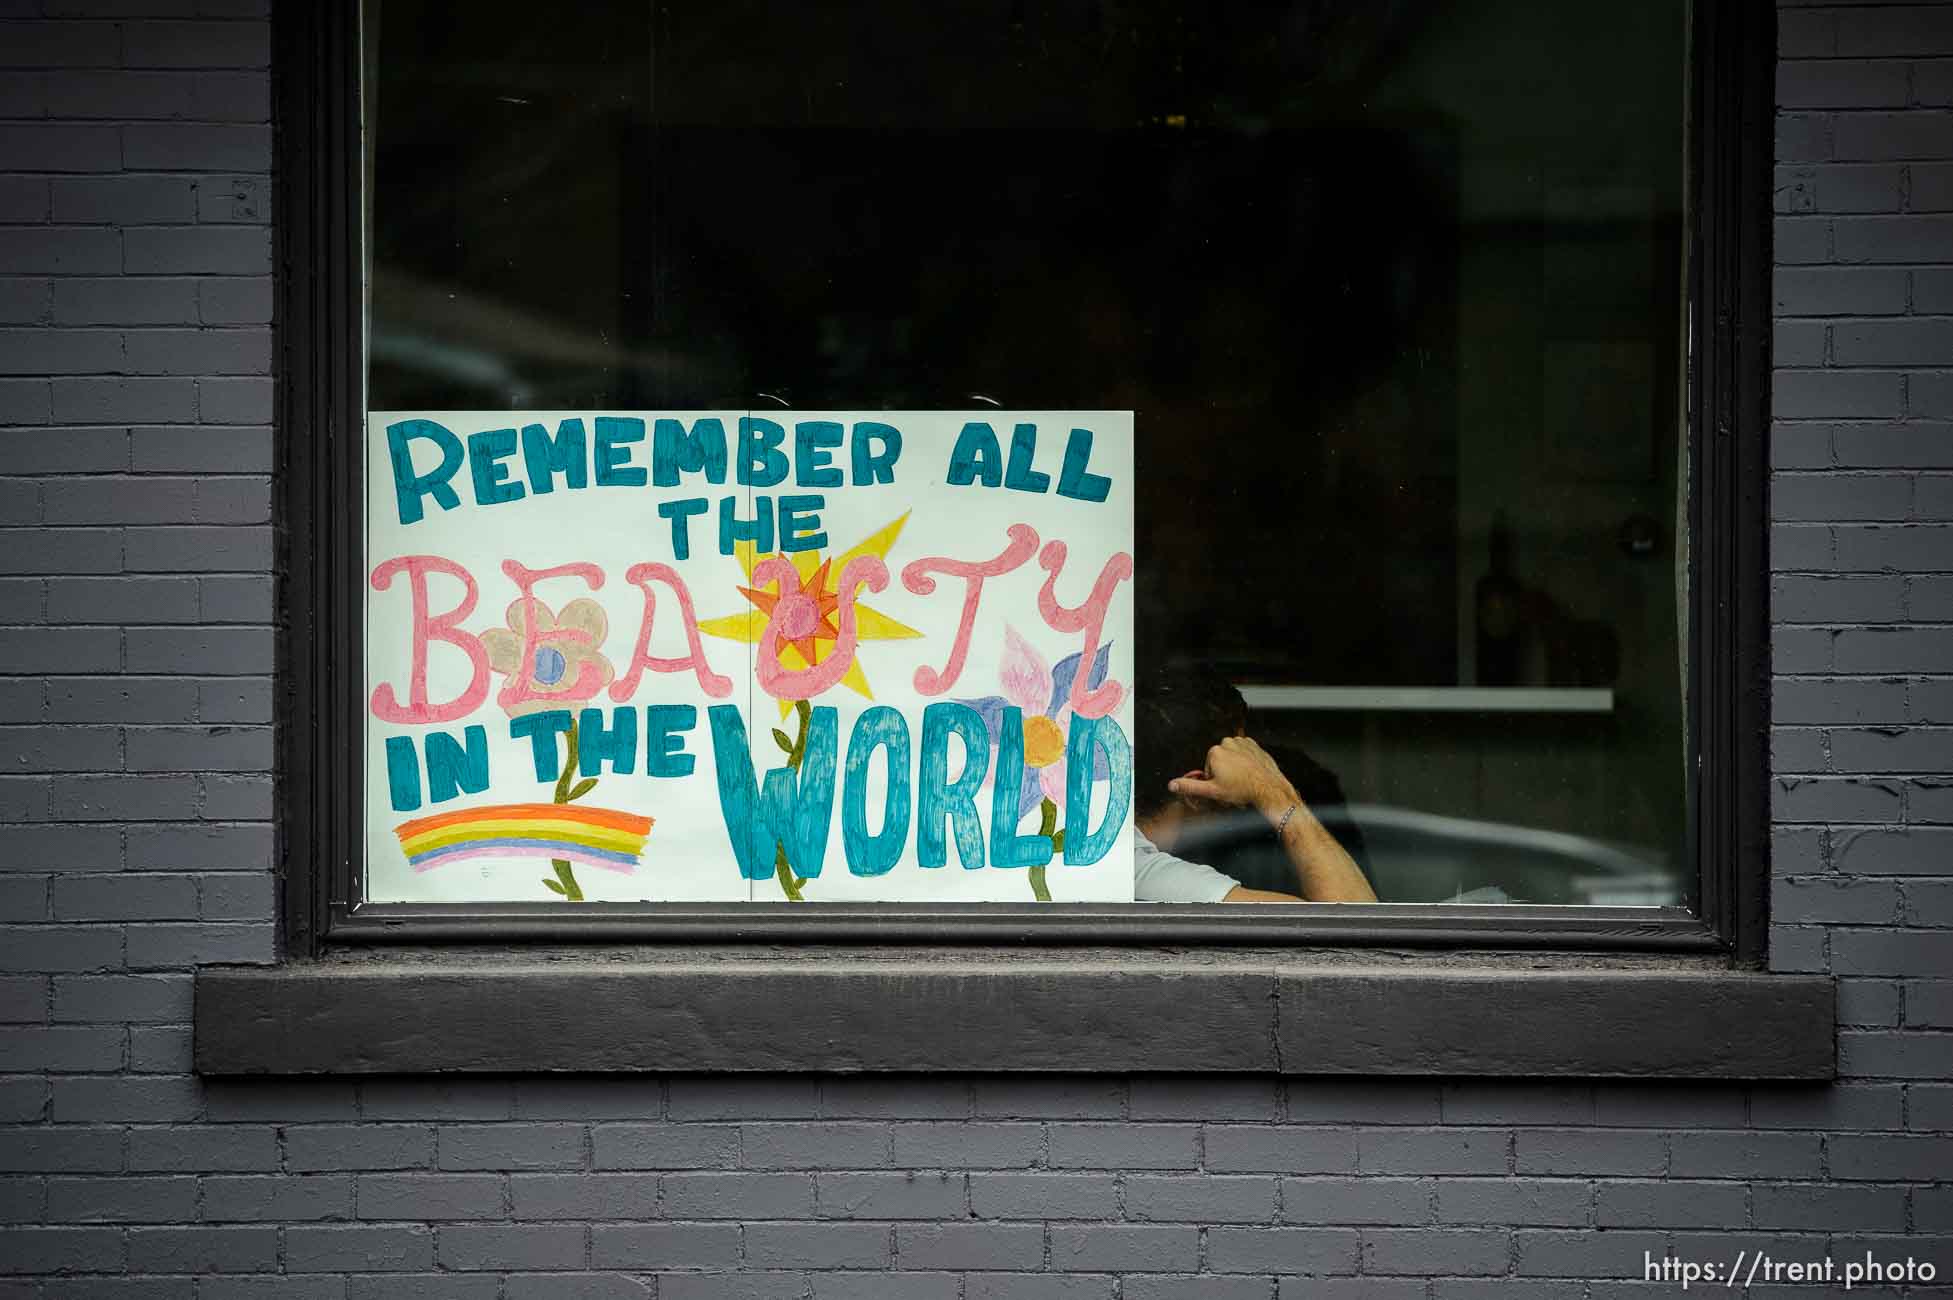 REMEMBER ALL
THE
BEAUTY
IN THE WORLD
https://trent.photo